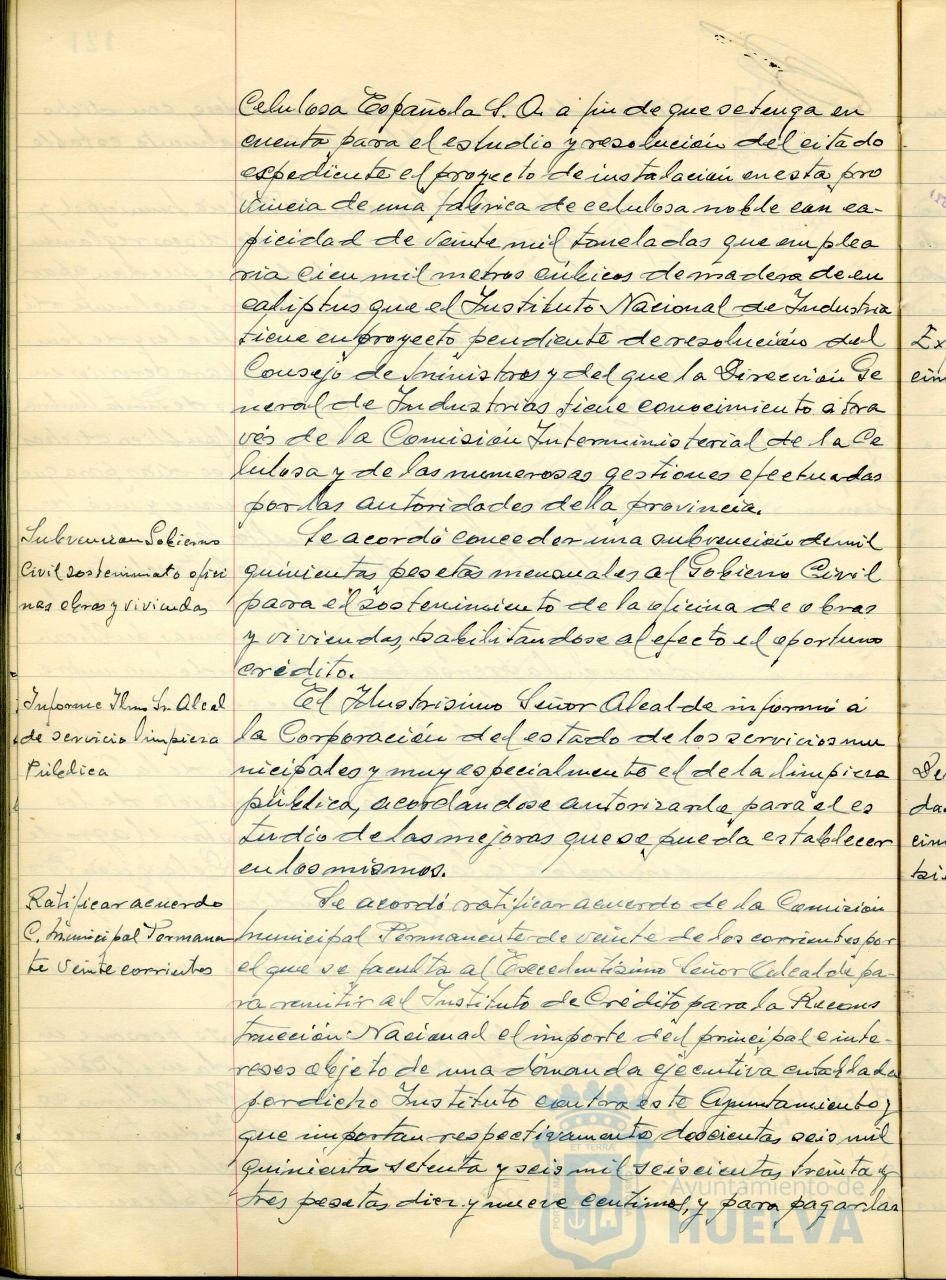 Celulosa Española S. A. a fin de que se tenga en
cuenta para el estudio y resolución del citado
espediente el proyecto de instalación en esta pro
vincia de una fabrica de celulosa noble con ca-
picidad de veinte mil toneladas que emplea
ria cien mil metros cúbicos de madera de eu
caliptus que el Instituto Nacional de Industria
tiene en proyecto pendiente de resolución del
Consejo de Ministros y del que la Dirección Ge
neral de Industrias tiene conocimiento a tra
vés de la Comisión Interministerial de la Ce
lulosa y de las numerosas gestiones efectuadas
por las autoridades de la provincia.
Subvencion Gobierno
Civil sostenimiato ofici
nas obras y viviendas
Se acordó conceder una subvención de mil
quinientas pesetas mensuales al Gobierno Civil
para el sostenimiento de la oficina de obras
y viviendas, habilitandose al efecto el oportuno
crédito.
Informe Ilmo Sr. Alcal
de servicio limpieza
Pública
El Ilustrisimo Señor Alcalde informó a
la Corporación del estado de los servicios mu
nicipales y muy especialmente el de la limpieza
pública, acordandose autorizarle para el es
tudio de las mejoras que se pueda establecer
en los mismos.
Ratificar acuerdo
C. Municipal Permanen
te veinte corrientes
Se acordó ratificar acuerdo de la Comisión
Municipal Permanente de veinte de los corrientes por
el que se faculta al Excelentisimo Señor Alcalde pa-
ra remitir al Instituto de Crédito para la Recons
trucción Nacional el importe del principal e inte-
reses objeto de una demanda ejecutiva entablada
por dicho Instituto contra este Ayuntamiento y
que importan respectivamente doscientas seis mil
quinienta setenta y seis mil seiscientas treinta y
tres pesetas diez y nueve centimos, y para pagarlas
Ayuntamiento de
HUELVA